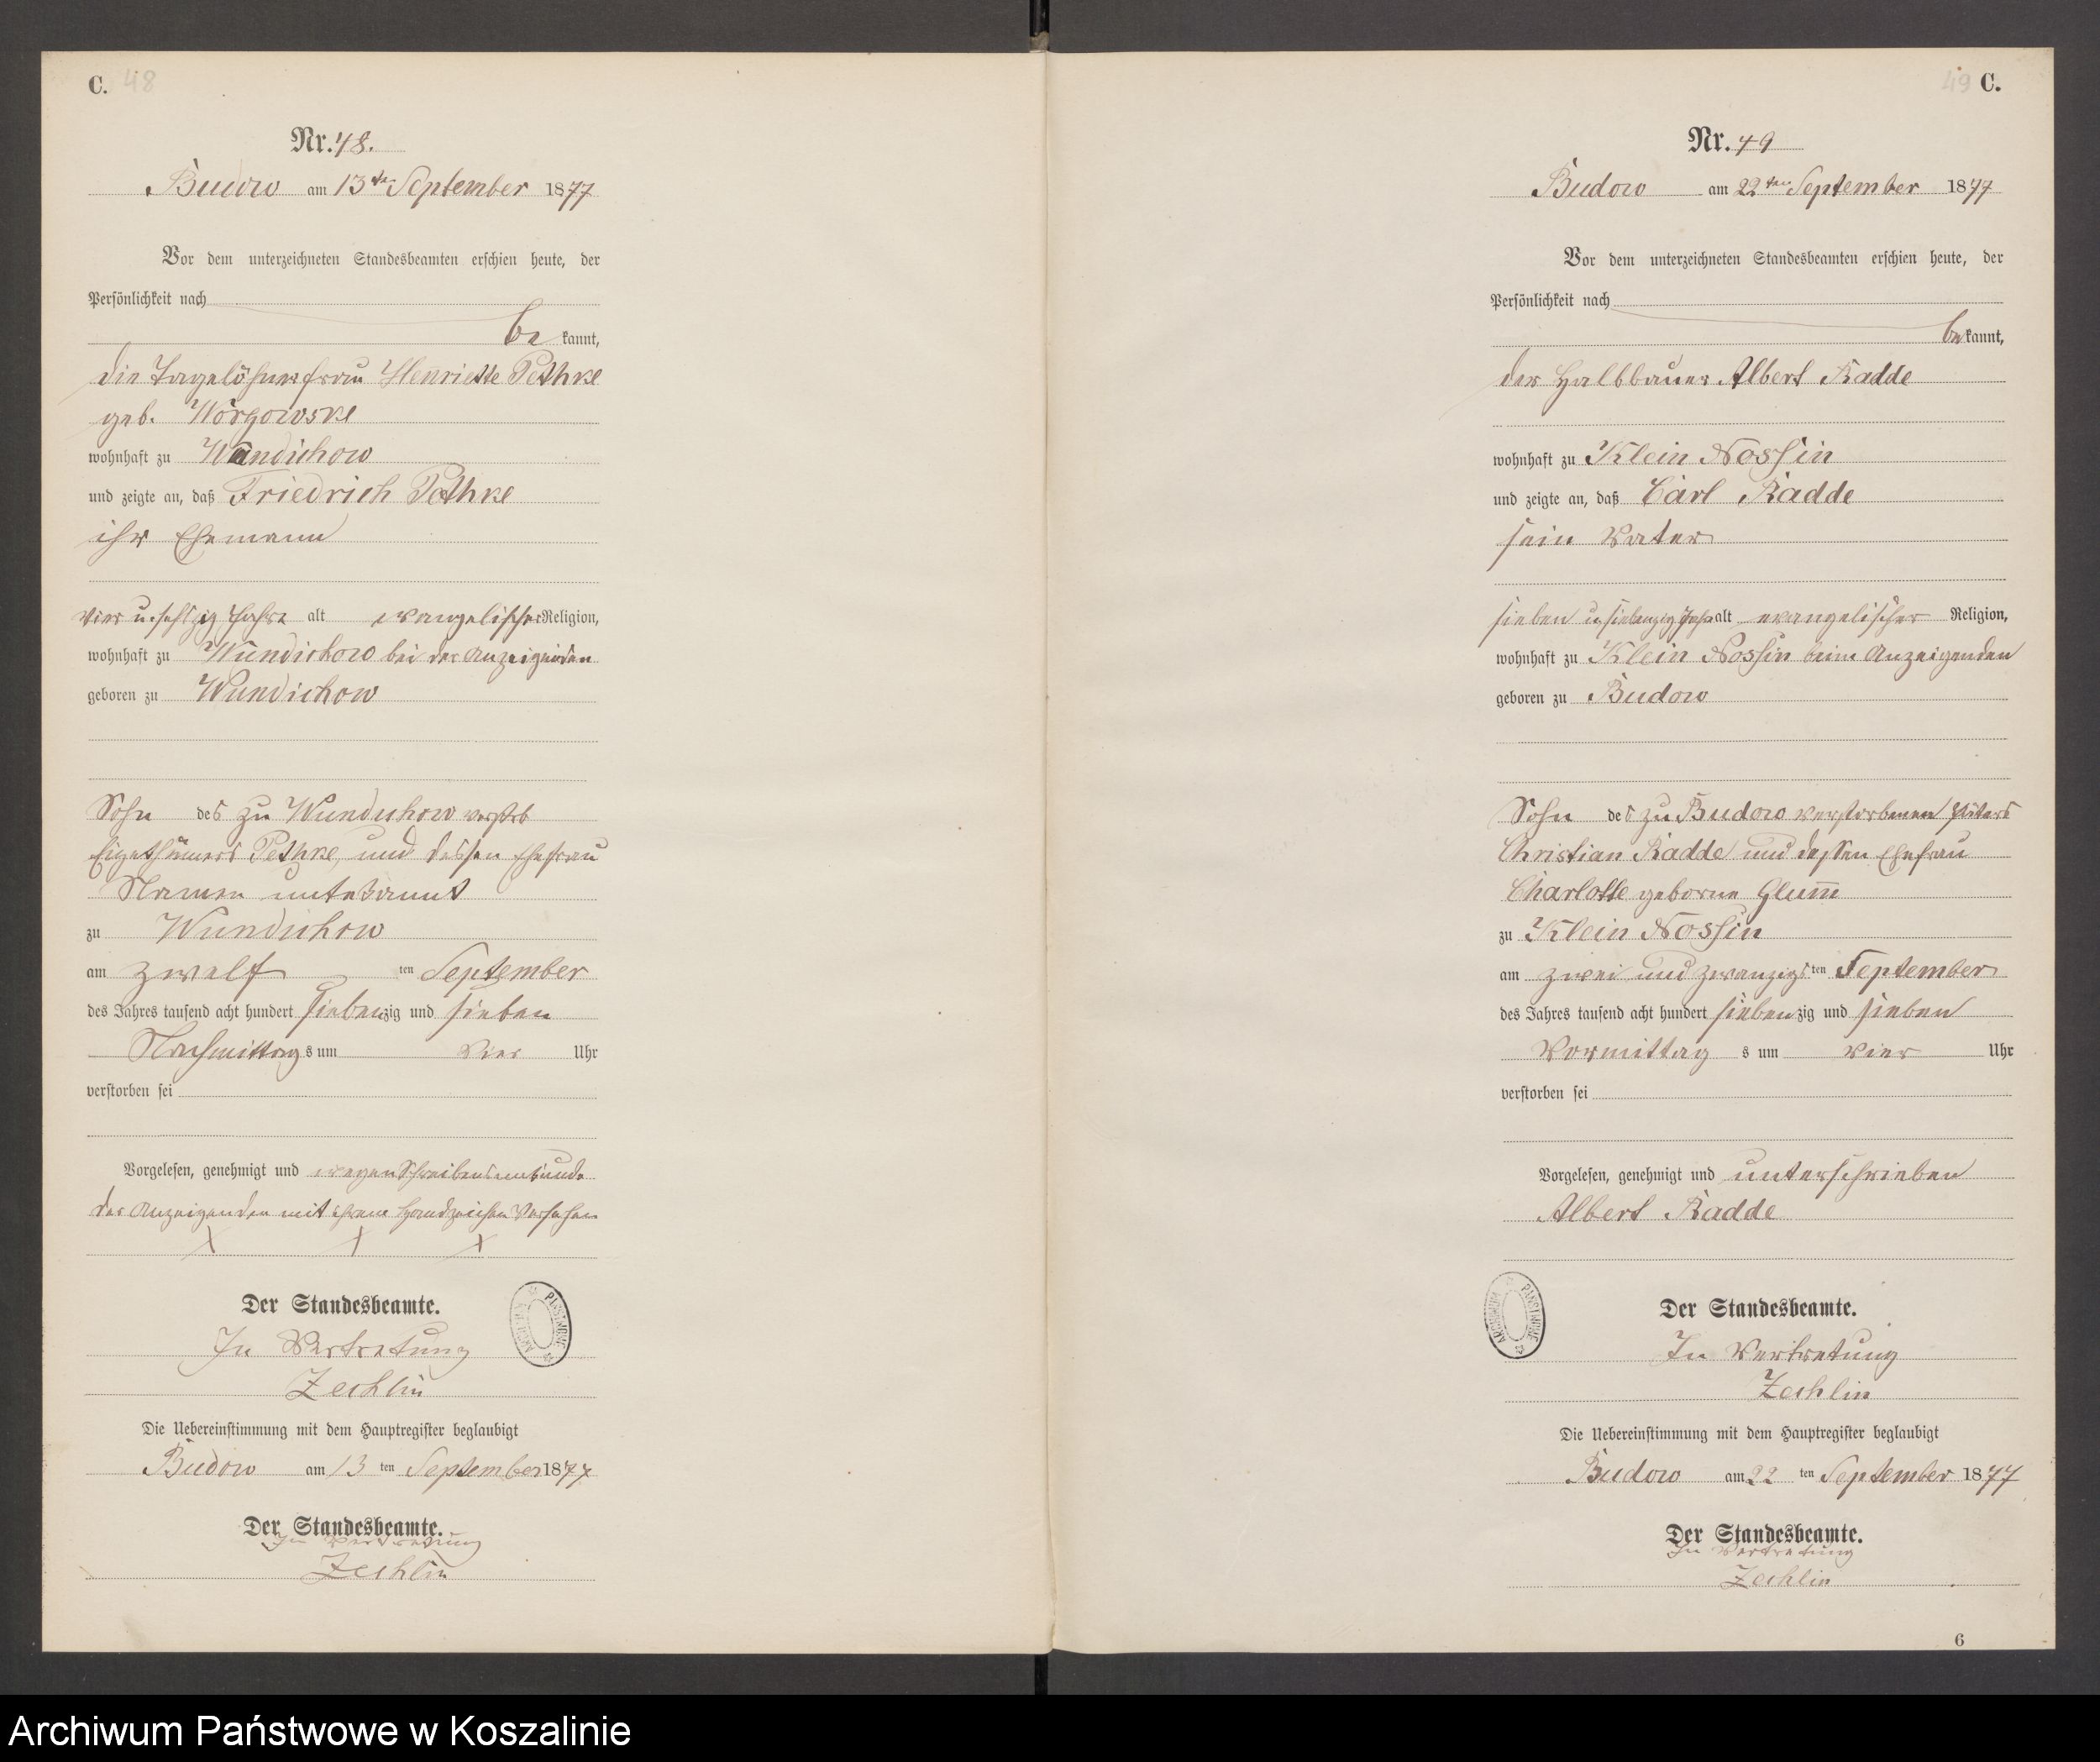 C. 48
Nr. 48.
Budow am 13ten September 1877
Vor dem unterzeichneten Standesbeamten erschien heute, der
Persönlichkeit nach
be kannt,
die Tagelöhnerfrau Henriette Pethke
geb. Worgowske
wohnhaft zu Wundichow
und zeigte an, daß Friedrich Pethke
ihr Ehemann
vier u. sechszig Jahre alt evangelischer Religion,
wohnhaft zu Wundichow bei der Anzeigenden
geboren zu Wundichow
Sohn des zu Wundichow verstorb
Eigenthümers Pethke, und dessen Ehefrau
Namen unbekannt
zu Wundichow
am zwölf ten September
des Jahres tausend acht hundert siebenzig und sieben
Nachmittags um vier Uhr
verstorben sei
Vorgelesen, genehmigt und wegen Schreibensunkunde
der Anzeigenden mit ihrem Handzeichen versehen
X X X
Der Standesbeamte.
In Vertretung
Zechlin
Die Uebereinstimmung mit dem Hauptregister beglaubigt
Budow am 13 ten September 1877
Der Standesbeamte.
In Vertretung
Zechlin
49 C.
Nr. 49
Budow am 22ten September 1877
Vor dem unterzeichneten Standesbeamten erschien heute, der
Persönlichkeit nach
be kannt,
der Halbbauer Albert Radde
wohnhaft zu Klein Nossin
und zeigte an, daß Carl Radde
sein Vater
sieben u. siebenzig Jahr alt evangelischer Religion,
wohnhaft zu Klein Nossin beim Anzeigenden
geboren zu Budow
Sohn des zu Budow verstorbenen
Christian Radde und dessen Ehefrau
Charlotte geborne Glum̅
zu Klein Nossin
am zwei und zwanzigsten September
des Jahres tausend acht hundert siebenzig und sieben
Vormittag s um vier Uhr
verstorben sei
Vorgelesen, genehmigt und unterschrieben
Albert Radde
ARCHIWUM PAŃSTWOWE
Der Standesbeamte.
In Vertretung
Zechlin
Die Uebereinstimmung mit dem Hauptregister beglaubigt
Budow am 22 ten September 1877
Der Standesbeamte.
In Vertretung
Zechlin
6
Archiwum Państwowe w Koszalinie